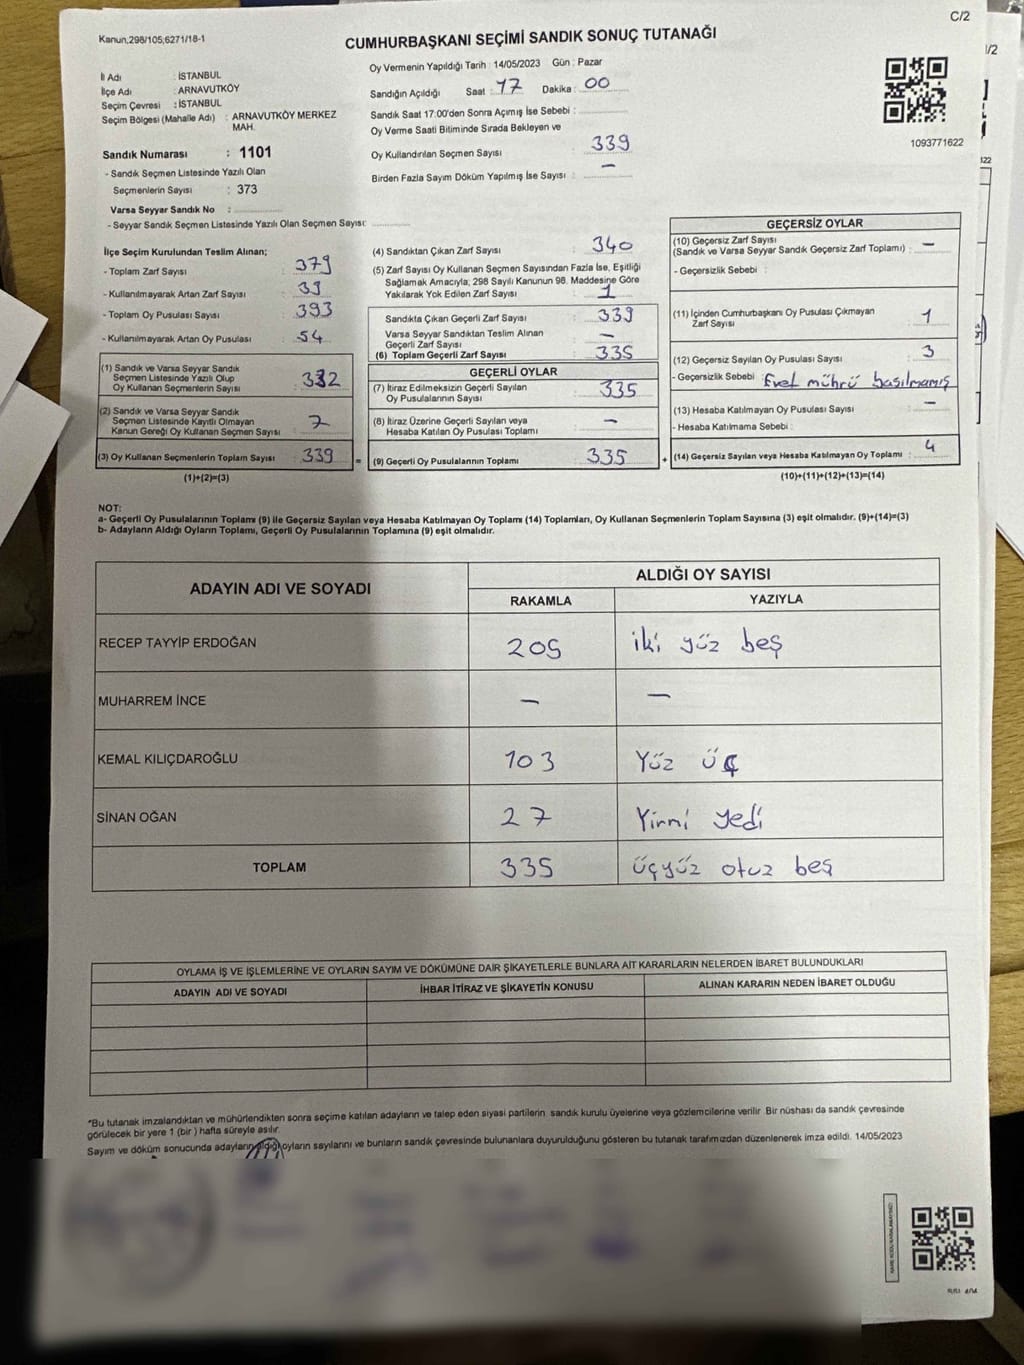 C/2
Kanun,298/105,6271/18-1
CUMHURBAŞKANI SEÇİMİ SANDIK SONUÇ TUTANAĞI
İl Adı : İSTANBUL
İlçe Adı : ARNAVUTKÖY
Seçim Çevresi : İSTANBUL
Seçim Bölgesi (Mahalle Adı) : ARNAVUTKÖY MERKEZ MAH.
Sandık Numarası : 1101
- Sandık Seçmen Listesinde Yazılı Olan
Seçmenlerin Sayısı : 373
Varsa Seyyar Sandık No :
- Seyyar Sandık Seçmen Listesinde Yazılı Olan Seçmen Sayısı:
Oy Vermenin Yapıldığı Tarih : 14/05/2023 Gün : Pazar
Sandığın Açıldığı Saat : 17 Dakika : 00
Sandık Saat 17:00'den Sonra Açımış İse Sebebi :
Oy Verme Saati Bitiminde Sırada Bekleyen ve
Oy Kullandırılan Seçmen Sayısı : 339
Birden Fazla Sayım Döküm Yapılmış İse Sayısı : —
1093771622
İlçe Seçim Kurulundan Teslim Alınan;
- Toplam Zarf Sayısı : 379
- Kullanılmayarak Artan Zarf Sayısı : 39
- Toplam Oy Pusulası Sayısı : 393
- Kullanılmayarak Artan Oy Pusulası : 54
(1) Sandık ve Varsa Seyyar Sandık
Seçmen Listesinde Yazılı Olup
Oy Kullanan Seçmenlerin Sayısı : 332
(2) Sandık ve Varsa Seyyar Sandık
Seçmen Listesinde Kayıtlı Olmayan
Kanun Gereği Oy Kullanan Seçmen Sayısı : 7
(3) Oy Kullanan Seçmenlerin Toplam Sayısı : 339
(1)+(2)=(3)
(4) Sandıktan Çıkan Zarf Sayısı : 340
(5) Zarf Sayısı Oy Kullanan Seçmen Sayısından Fazla İse, Eşitliği
Sağlamak Amacıyla; 298 Sayılı Kanunun 98. Maddesine Göre
Yakılarak Yok Edilen Zarf Sayısı : 1
Sandıkta Çıkan Geçerli Zarf Sayısı : 339
Varsa Seyyar Sandıktan Teslim Alınan
Geçerli Zarf Sayısı : —
(6) Toplam Geçerli Zarf Sayısı : 335
GEÇERLİ OYLAR
(7) İtiraz Edilmeksizin Geçerli Sayılan
Oy Pusulalarının Sayısı : 335
(8) İtiraz Üzerine Geçerli Sayılan veya
Hesaba Katılan Oy Pusulası Toplamı : —
= (9) Geçerli Oy Pusulalarının Toplamı : 335
GEÇERSİZ OYLAR
(10) Geçersiz Zarf Sayısı
(Sandık ve Varsa Seyyar Sandık Geçersiz Zarf Toplamı) : —
- Geçersizlik Sebebi :
(11) İçinden Cumhurbaşkanı Oy Pusulası Çıkmayan
Zarf Sayısı : 1
(12) Geçersiz Sayılan Oy Pusulası Sayısı : 3
- Geçersizlik Sebebi : Evet mührü basılmamış
(13) Hesaba Katılmayan Oy Pusulası Sayısı : —
- Hesaba Katılmama Sebebi :
+ (14) Geçersiz Sayılan veya Hesaba Katılmayan Oy Toplamı : 4
(10)+(11)+(12)+(13)=(14)
NOT:
a- Geçerli Oy Pusulalarının Toplamı (9) ile Geçersiz Sayılan veya Hesaba Katılmayan Oy Toplamı (14) Toplamları, Oy Kullanan Seçmenlerin Toplam Sayısına (3) eşit olmalıdır. (9)+(14)=(3)
b- Adayların Aldığı Oyların Toplamı, Geçerli Oy Pusulalarının Toplamına (9) eşit olmalıdır.
ADAYIN ADI VE SOYADI ALDIĞI OY SAYISI
RAKAMLA YAZIYLA
RECEP TAYYİP ERDOĞAN 205 iki yüz beş
MUHARREM İNCE — —
KEMAL KILIÇDAROĞLU 103 Yüz üç
SİNAN OĞAN 27 Yirmi yedi
TOPLAM 335 üçyüz otuz beş
OYLAMA İŞ VE İŞLEMLERİNE VE OYLARIN SAYIM VE DÖKÜMÜNE DAİR ŞİKAYETLERLE BUNLARA AİT KARARLARIN NELERDEN İBARET BULUNDUKLARI
ADAYIN ADI VE SOYADI İHBAR İTİRAZ VE ŞİKAYETİN KONUSU ALINAN KARARIN NEDEN İBARET OLDUĞU
*Bu tutanak imzalandıktan ve mühürlendikten sonra seçime katılan adayların ve talep eden siyasi partilerin sandık kurulu üyelerine veya gözlemcilerine verilir. Bir nüshası da sandık çevresinde
görülecek bir yere 1 (bir ) hafta süreyle asılır.
Sayım ve döküm sonucunda adayların aldığı oyların sayılarını ve bunların sandık çevresinde bulunanlara duyurulduğunu gösteren bu tutanak tarafımızdan düzenlenerek imza edildi. 14/05/2023